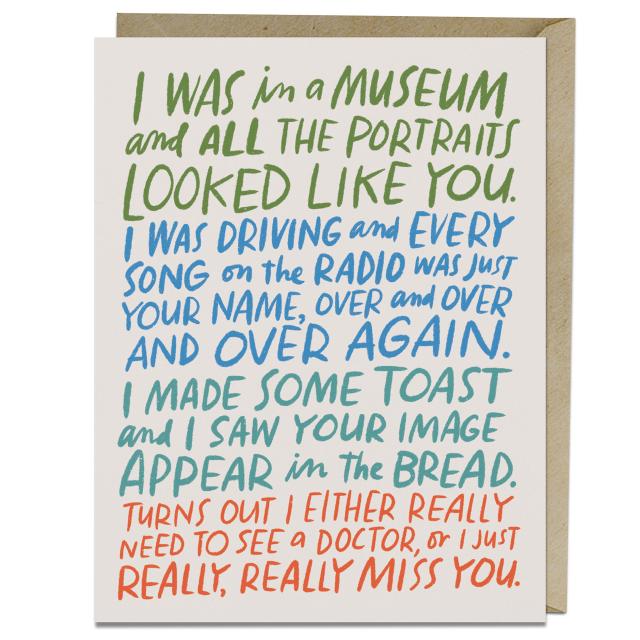 I WAS in a MUSEUM
and ALL THE PORTRAITS
LOOKED LIKE YOU.
I WAS DRIVING and EVERY
SONG on the RADIO WAS JUST
YOUR NAME, OVER and OVER
AND OVER AGAIN.
I MADE SOME TOAST
and I SAW YOUR IMAGE
APPEAR in the BREAD.
TURNS OUT I EITHER REALLY
NEED TO SEE a DOCTOR, or I JUST
REALLY, REALLY MISS YOU.